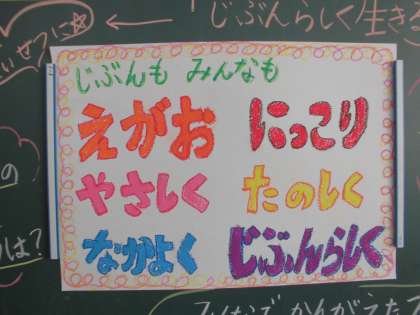 じぶんらしく生き
じぶんも みんなも
えがお にっこり
やさしく たのしく
なかよく じぶんらしく
は?
みんなで かんがえた